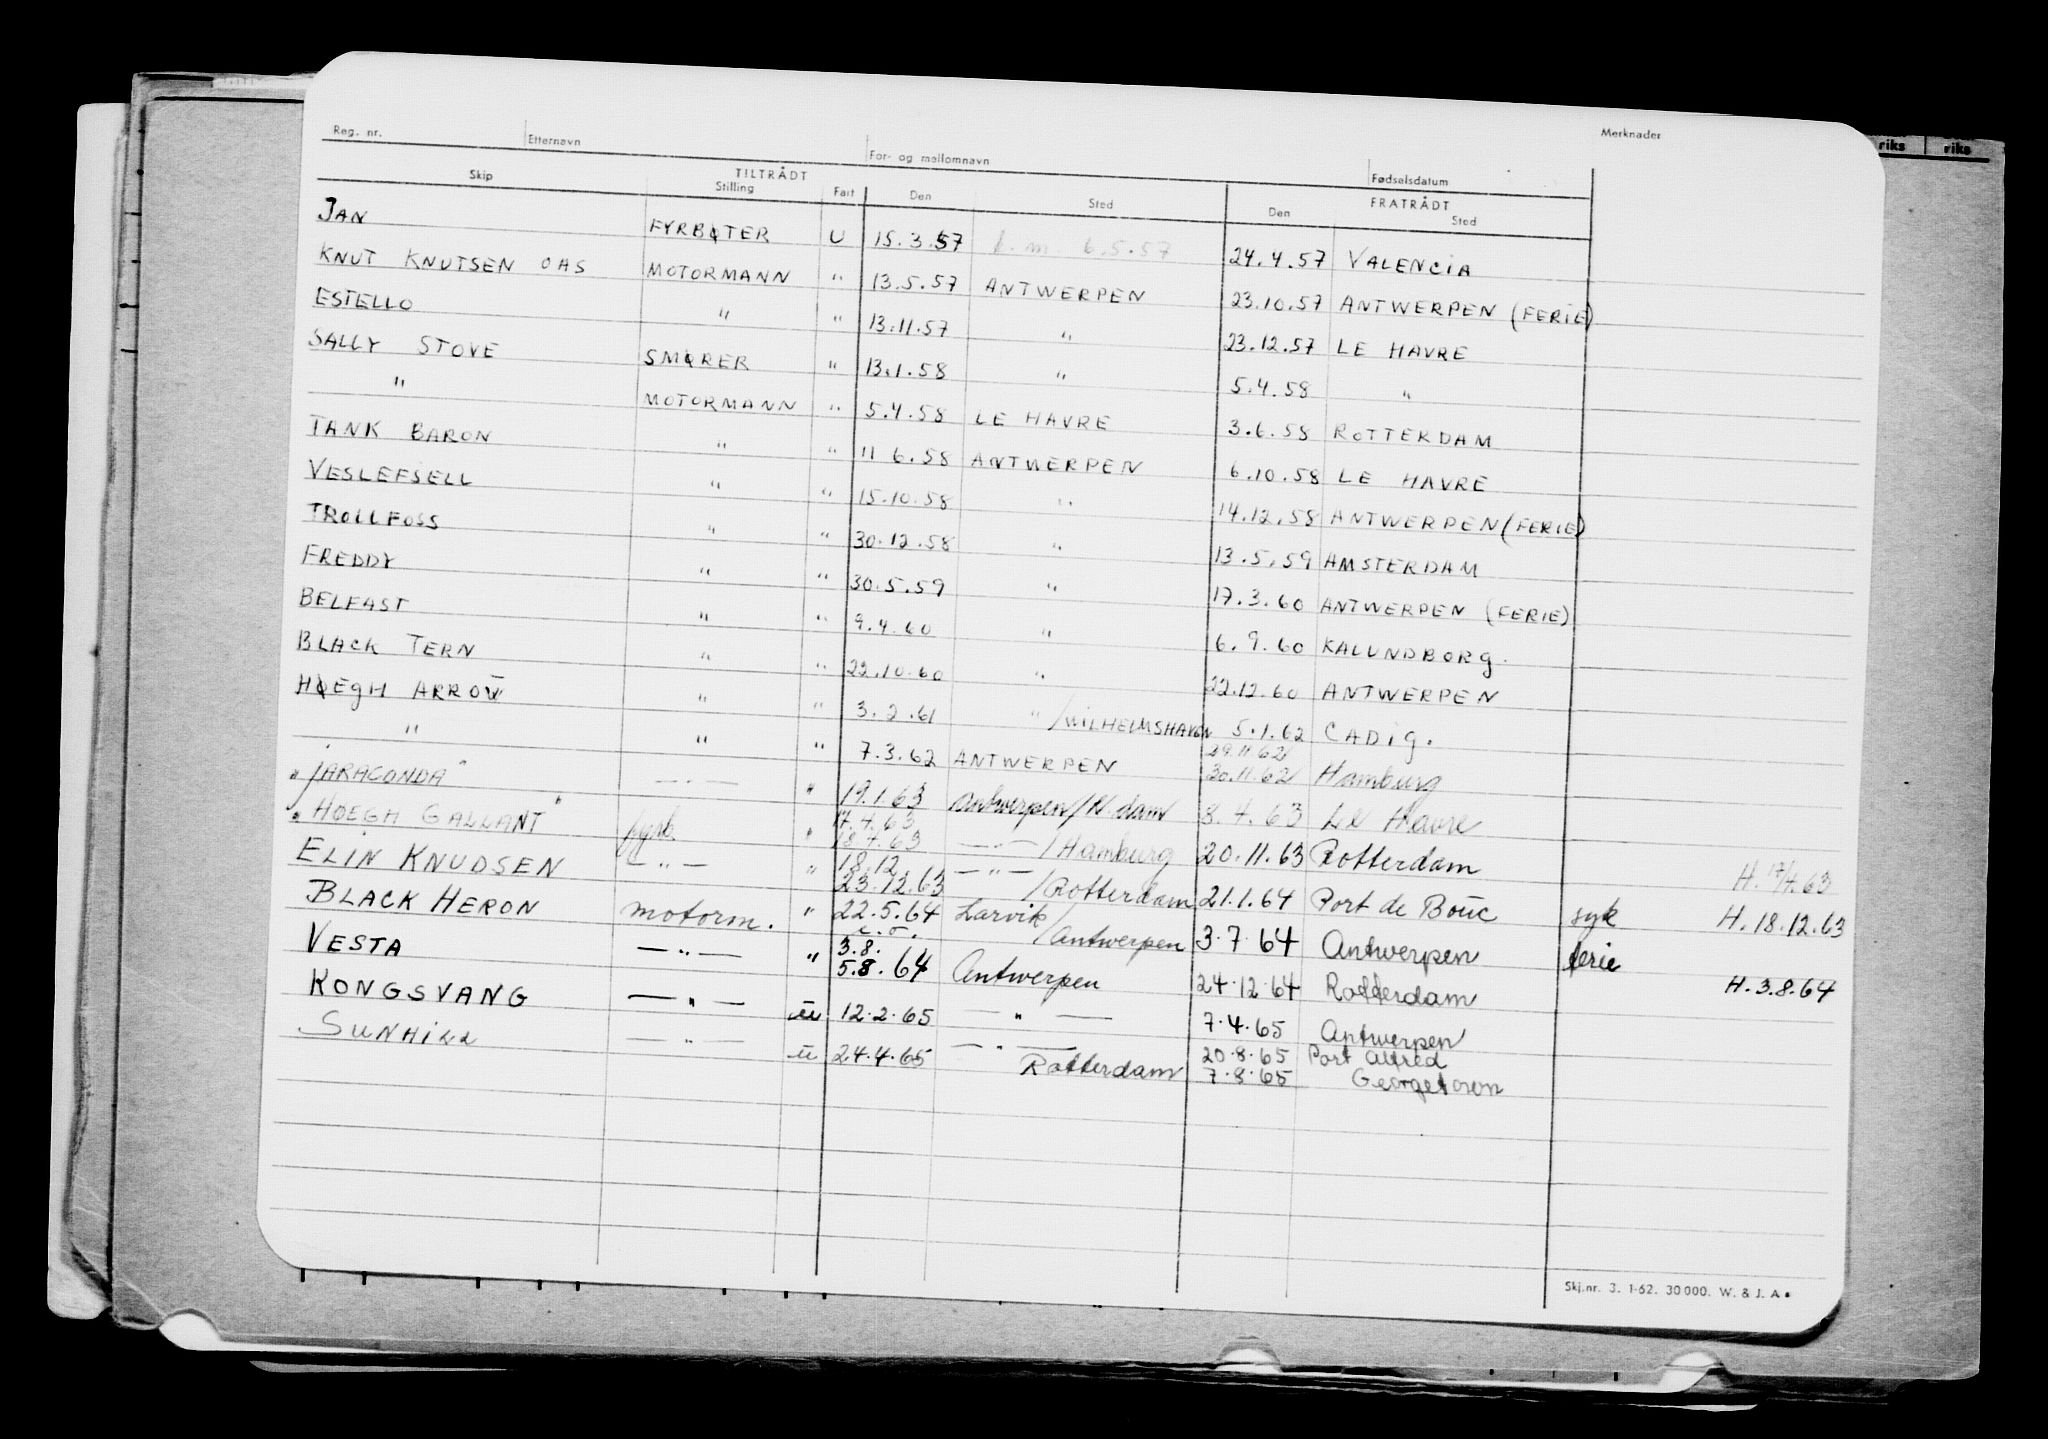 Reg. nr. Etternavn For- og mellomnavn Fødselsdatum Merknader
Skip TILTRÅDT Stilling Fart Den Sted FRATRÅDT Den Sted
JAN FYRBØTER U 15.3.57 6.5.57 24.4.57 VALENCIA
KNUT KNUTSEN OAS MOTORMANN " 13.5.57 ANTWERPEN 23.10.57 ANTWERPEN (FERIE)
ESTELLO " " 13.11.57 " 23.12.57 LE HAVRE
SALLY STOVE SMØRER " 13.1.58 " 5.4.58 "
" MOTORMANN " 5.4.58 LE HAVRE 3.6.58 ROTTERDAM
TANK BARON " " 11 6.58 ANTWERPEN 6.10.58 LE HAVRE
VESLEFSELL " " 15.10.58 " 14.12.58 ANTWERPEN (FERIE)
TROLLFOSS " " 30.12.58 " 13.5.59 AMSTERDAM
FREDDY " " 30.5.59 " 17.3.60 ANTWERPEN (FERIE)
BELFAST " " 9.4.60 " 6.9.60 KALUNDBORG.
BLACK TERN " " 22.10.60 " 22.12.60 ANTWERPEN
HØEGH ARROW " " 3.2.61 " /WILHELMSHAVEN 5.1.62 CADIG.
" " " 7.3.62 ANTWERPEN 29.11.62 30.11.62 Hamburg
"JARACONDA" —"— " 19.1.63 Antwerpen/R.dam 8.4.63 Le Havre
"HØEGH GALLANT" fyrb. " 17.4.63 18.4.63 —"—/Hamburg 20.11.63 Rotterdam H. 17/4.63
ELIN KNUDSEN —"— " 18.12. 23.12.63 —"—/Rotterdam 21.1.64 Port de Bouc syk H.18.12.63
BLACK HERON motorm. " 22.5.64 Larvik/Antwerpen 3.7.64 Antwerpen ferie
VESTA —"— " 3.8. 5.8.64 Antwerpen 24.12.64 Rotterdam H.3.8.64
KONGSVANG —"— u 12.2.65 —"— 7.4.65 Antwerpen
SUNHILL —"— u 24.4.65 —"— Rotterdam 20.8.65 Port Alfred
7.8.65 Georgetown
Skj.nr. 3. 1-62. 30000. W. & J. A.
riks riks